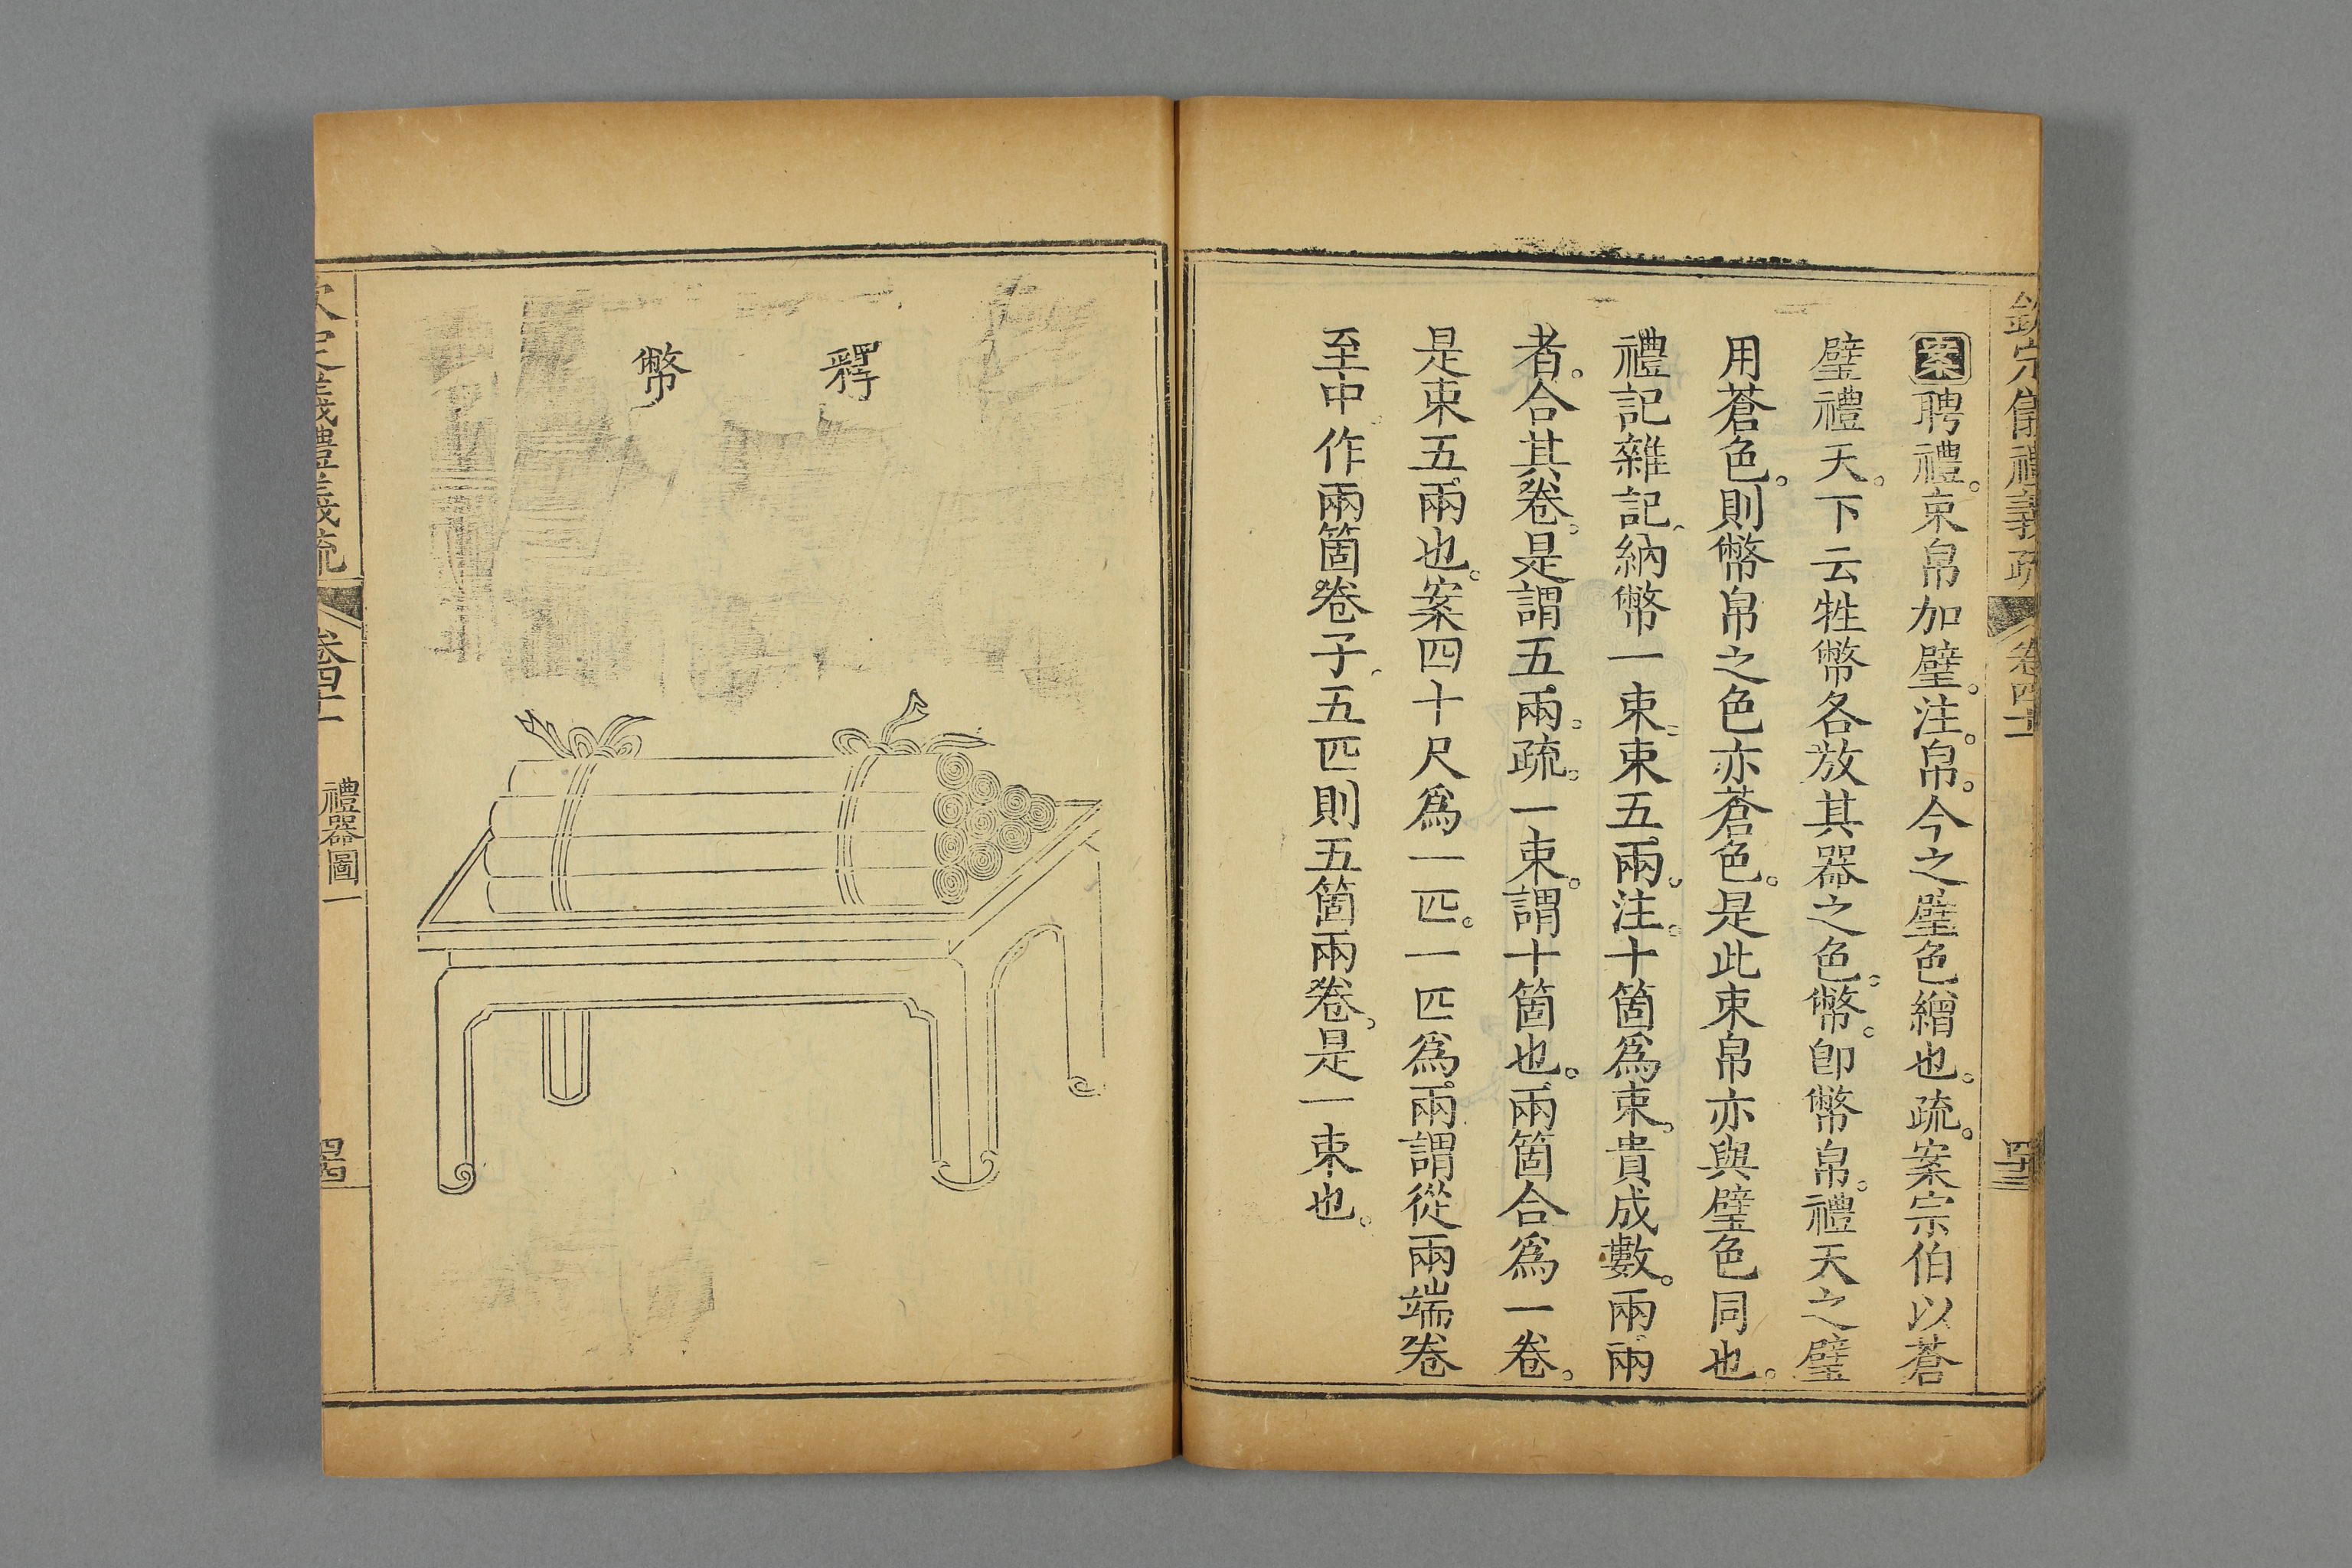 欽定儀禮義疏 卷四十二 四十三
案聘禮。束帛加璧。注。帛。今之璧色繒也。疏。案宗伯以蒼
璧禮天。下云牲幣各放其器之色。幣。卽幣帛。禮天之璧
用蒼色。則幣帛之色亦蒼色。是此束帛亦與璧色同也。
禮記雜記、納幣一束。束五兩。注。十箇爲束。貴成數。兩兩
者。合其卷。是謂五兩。疏。一束。謂十箇也。兩箇合爲一卷。
是束五兩也。案四十尺爲一匹。一匹爲兩謂從兩端卷
至中、作兩箇卷子、五匹則五箇兩卷。是一束也。
釋
幣
欽定義禮義疏 卷四十二 禮器圖一 四十四